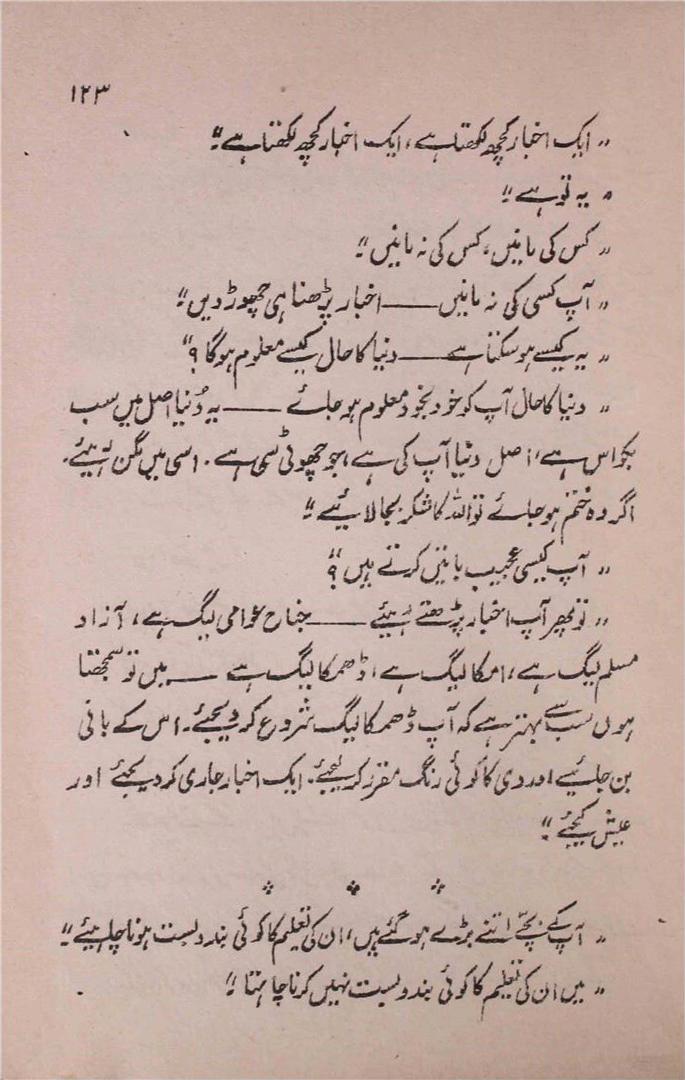 ۱۲۳
"ایک اخبار کچھ لکھتا ہے، ایک اخبار کچھ لکھتا ہے۔"
"یہ تو ہے۔"
"کس کی مانیں، کس کی نہ مانیں۔"
"آپ کسی کی نہ مانیں ــــــ اخبار پڑھنا ہی چھوڑ دیں۔"
"یہ کیسے ہو سکتا ہے ــــــ دنیا کا حال کیسے معلوم ہوگا؟"
"دنیا کا حال آپ کو خود بخود معلوم ہو جائے ــــــ یہ دُنیا اصل میں سب
بکواس ہے، اصل دنیا آپ کی ہے، جو چھوٹی سی ہے۔ اسی میں مگن رہیئے۔
اگر وہ ختم ہو جائے تو اللہ کا شکر بجا لائیے۔"
"آپ کیسی عجیب باتیں کرتے ہیں؟"
"تو پھر آپ اخبار پڑھتے رہیئے ــــــ جناح عوامی لیگ ہے، آزاد
مسلم لیگ ہے، امکا لیگ ہے، ڈھمکا لیگ ہے ــــــ میں تو سمجھتا
ہوں سب سے بہتر ہے کہ آپ ڈھمکا لیگ شروع کر دیجئے۔ اس کے بانی
بن جائیے اور وردی کا کوئی رنگ مقرر کر لیجئے۔ ایک اخبار جاری کر دیجئے اور
عیش کیجئے۔"
"آپ کے بچے اتنے بڑے ہو گئے ہیں، ان کی تعلیم کا کوئی بندوبست ہونا چاہیئے۔"
"میں ان کی تعلیم کا کوئی بندوبست نہیں کرنا چاہتا۔"